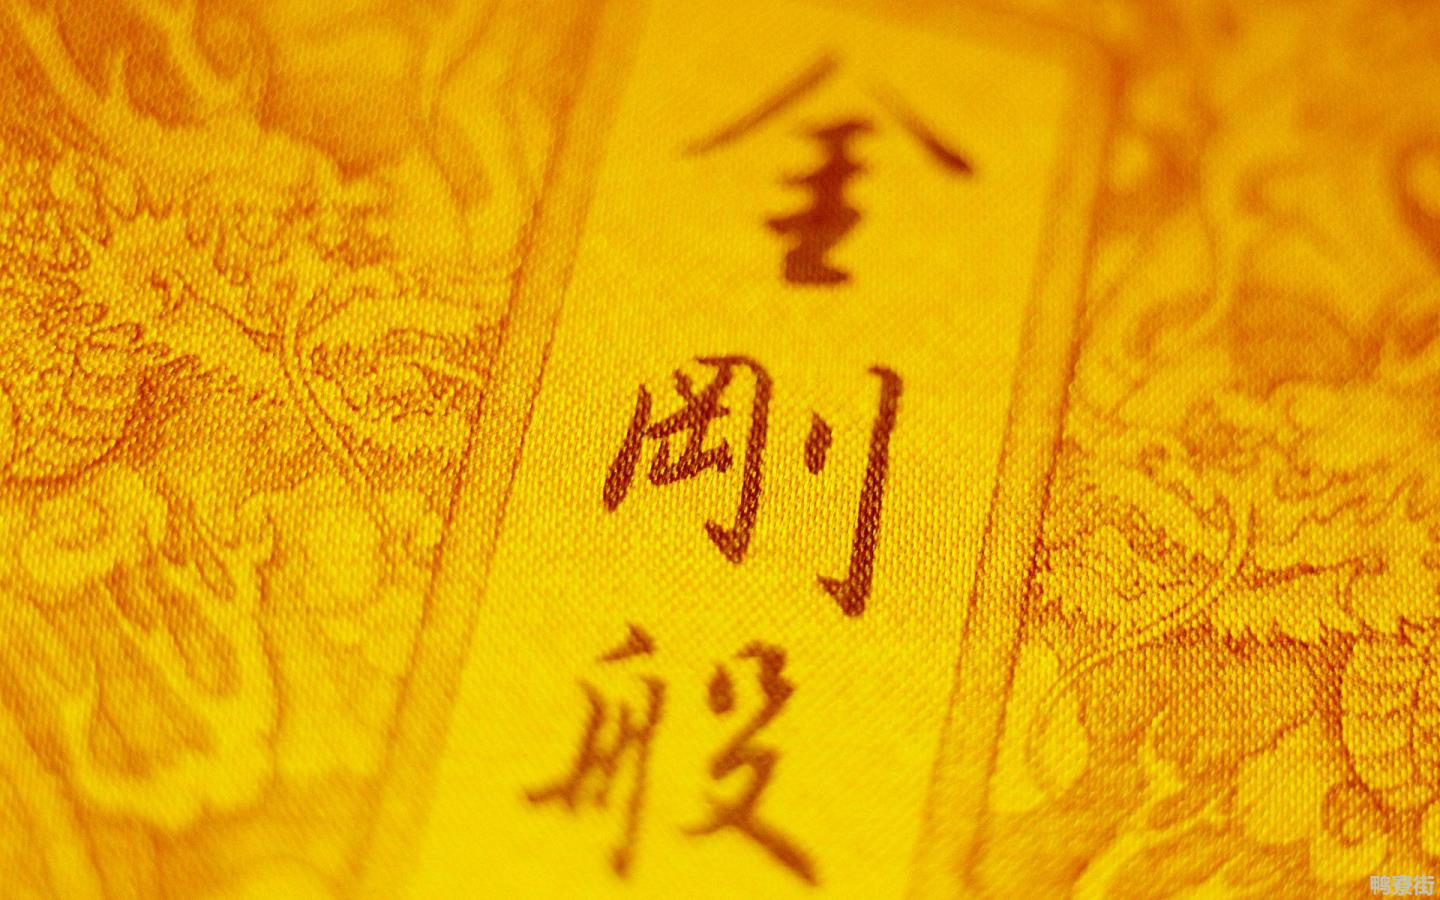 金剛般
鸭寮街